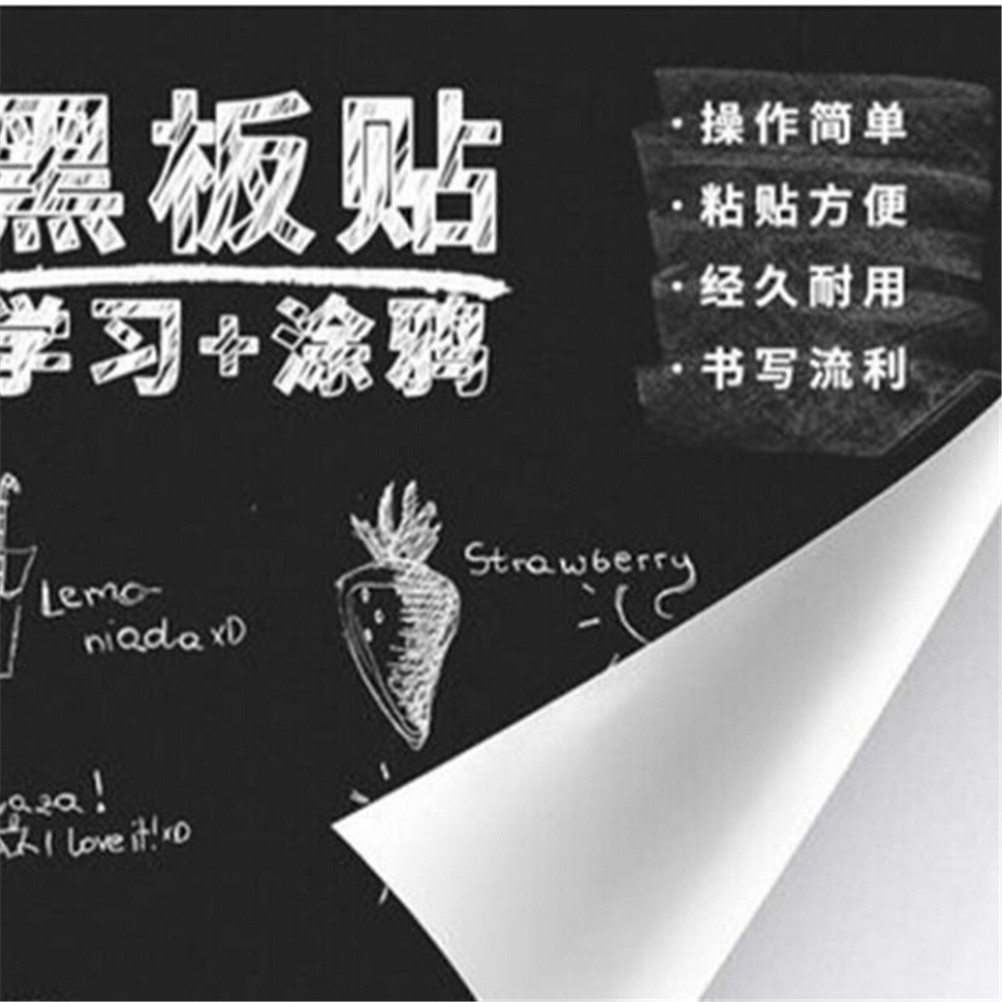 黑板贴
学习+涂鸦
· 操作简单
· 粘贴方便
· 经久耐用
· 书写流利
Strawberry
Lemo-
niada xD
aza!
I love it! xD